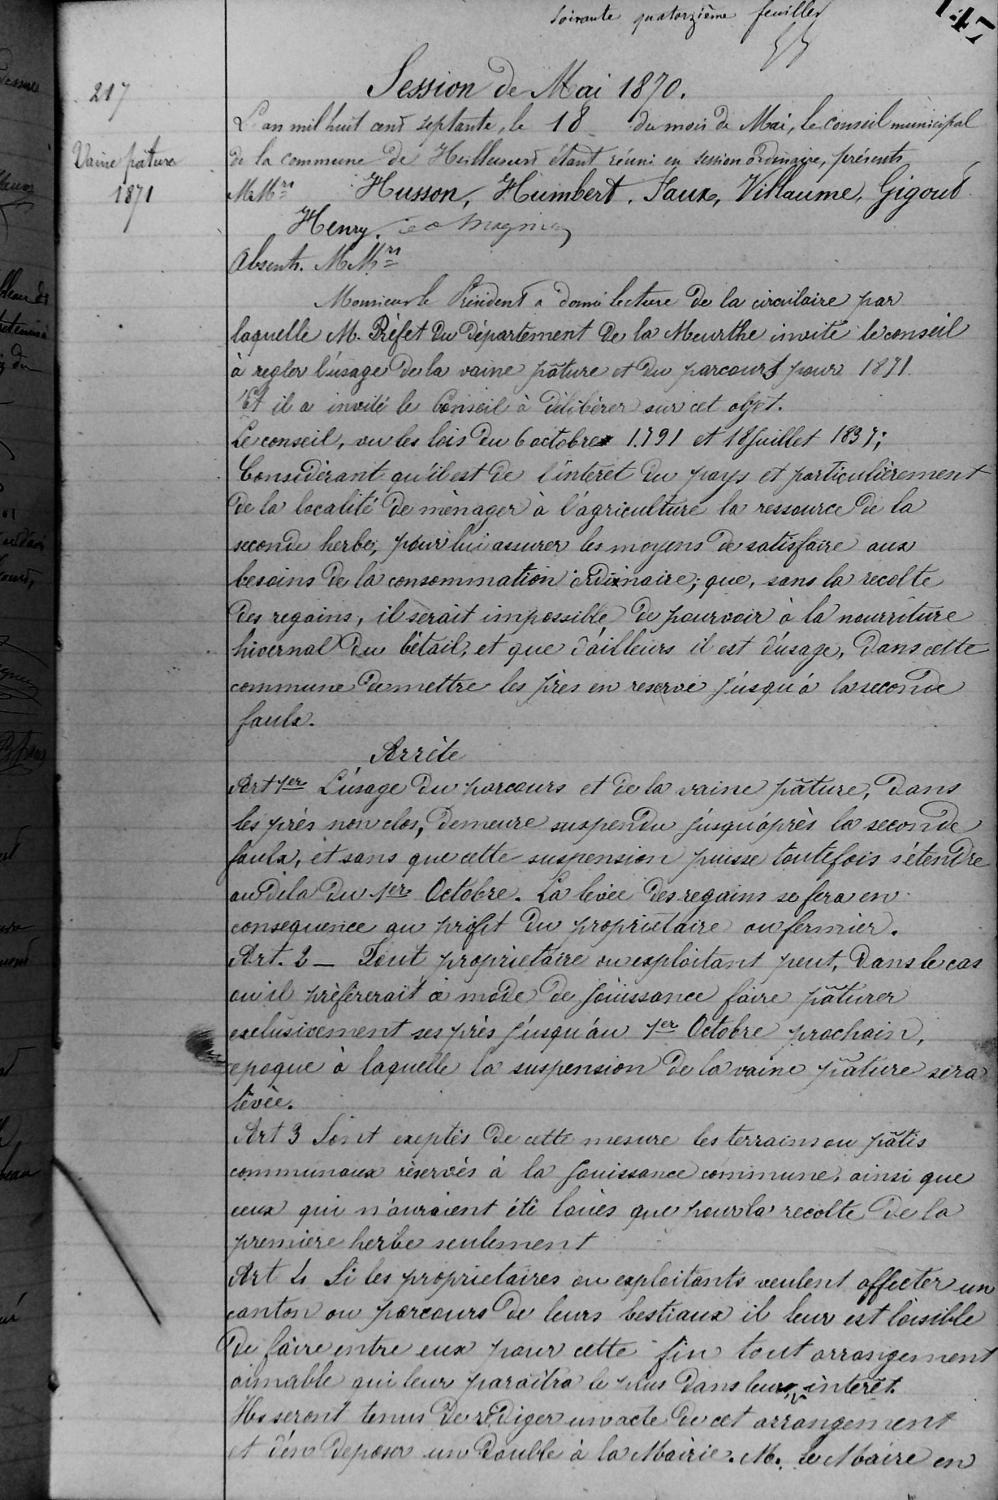 Soixante quatorzième feuillet
147
217
Session de Mai 1870.
Vaine pâture
1871
L'an mil huit cent septante, le 18 du mois de Mai, le conseil municipal
de la commune de étant réuni en session ordinaire, présents
M.Mrs Husson, Humbert, Faux, Villaume, Gigout
Henry,
Absents. M.Mrs
Monsieur le Président a donné lecture de la circulaire par
laquelle M. Prèfet du département de la Meurthe invite le conseil
à regler l'usage de la vaine pâture et du parcours pour 1871.
Et il a invité le Conseil à délibérer sur cet objet.
Le conseil, vu les lois du 6 octobre 1791 et 18 Juillet 1837;
Considèrant qu'il est de l'intéret du pays et particulièrement
de la localité de ménager à l'agriculture la ressource de la
seconde herbe, pour lui assurer les moyens de satisfaire aux
besoins de la consommation ordinaire; que, sans la recolte
des regains, il serait impossible de pourvoir à la nourriture
hivernal du bétail, et que d'ailleurs il est d'usage, dans cette
commune de mettre les prés en reserve jusqu'à la seconde
faulx.
Arrête
Art 1er L'usage du parcours et de la vaine pâture, dans
les prés non clos, demeure suspendu jusqu'après la seconde
faulx, et sans que cette suspension puisse toutefois s'étendre
au dela du 1er Octobre. La levée des regains se fera en
consequence au profit du propriétaire ou fermier.
Art. 2 — Tout proprietaire ou exploitant peut, dans le cas
où il prèférerait ce mode de jouissance faire pâturer
exclusivement ses près jusqu'au 1er Octobre prochain,
epoque à laquelle la suspension de la vaine pâture sera
levée.
Art 3 Sont exeptés de cette mesure les terrains ou pâtis
communaux réservés à la jouissance commune, ainsi que
ceux qui n'auraient été loués que pour la recolte de la
premiere herbe seulement
Art 4 Si les proprietaires ou exploitants veulent affecter un
canton au parcours de leurs bestiaux il leur est loisible
de faire entre eux pour cette fin tout arrangement
aimable qui leur paraîtra le plus dans leur intérêt.
Ils seront tenus de rédiger un acte de cet arrangement
et d'en deposer un double à la Mairie. M. le Maire en